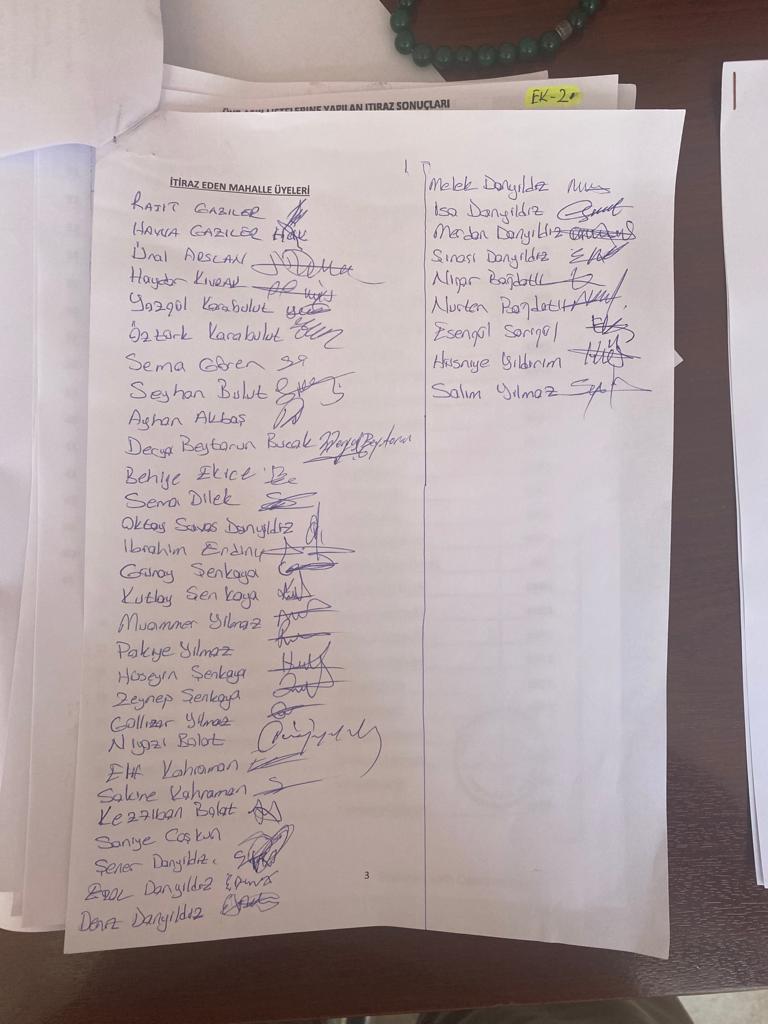 LİSTELERİNE YAPILAN İTİRAZ SONUÇLARI
EK-2
İTİRAZ EDEN MAHALLE ÜYELERİ
RAŞİT GAZİLER
HAVVA GAZİLER
Ünal ARSLAN
Haydar KIVRAK
Yazgül Karabulut
Öztürk Karabulut
Sema Gören
Seyhan Bulut
Ayhan Aktaş
Derya Beytorun Bucak
Behiye Ekici
Sema Dilek
Oktay Savaş Danyıldız
İbrahim Erdinç
Günay Şenkaya
Kutlay Şenkaya
Muammer Yılmaz
Pakiye Yılmaz
Hüseyin Şenkaya
Zeynep Şenkaya
Güllizar Yılmaz
Niyazi Bolat
Elif Kahraman
Sakine Kahraman
Kezziban Bolat
Saniye Coşkun
Şener Danyıldız.
EROL Danyıldız
Deniz Danyıldız
3
Melek Danyıldız
İsa Danyıldız
Merdan Danyıldız
Şinasi Danyıldız
Nigar Bağdatlı
Nurten Bağdatlı
Esengül Sarıgül
Hüsniye Yıldırım
Salim Yılmaz